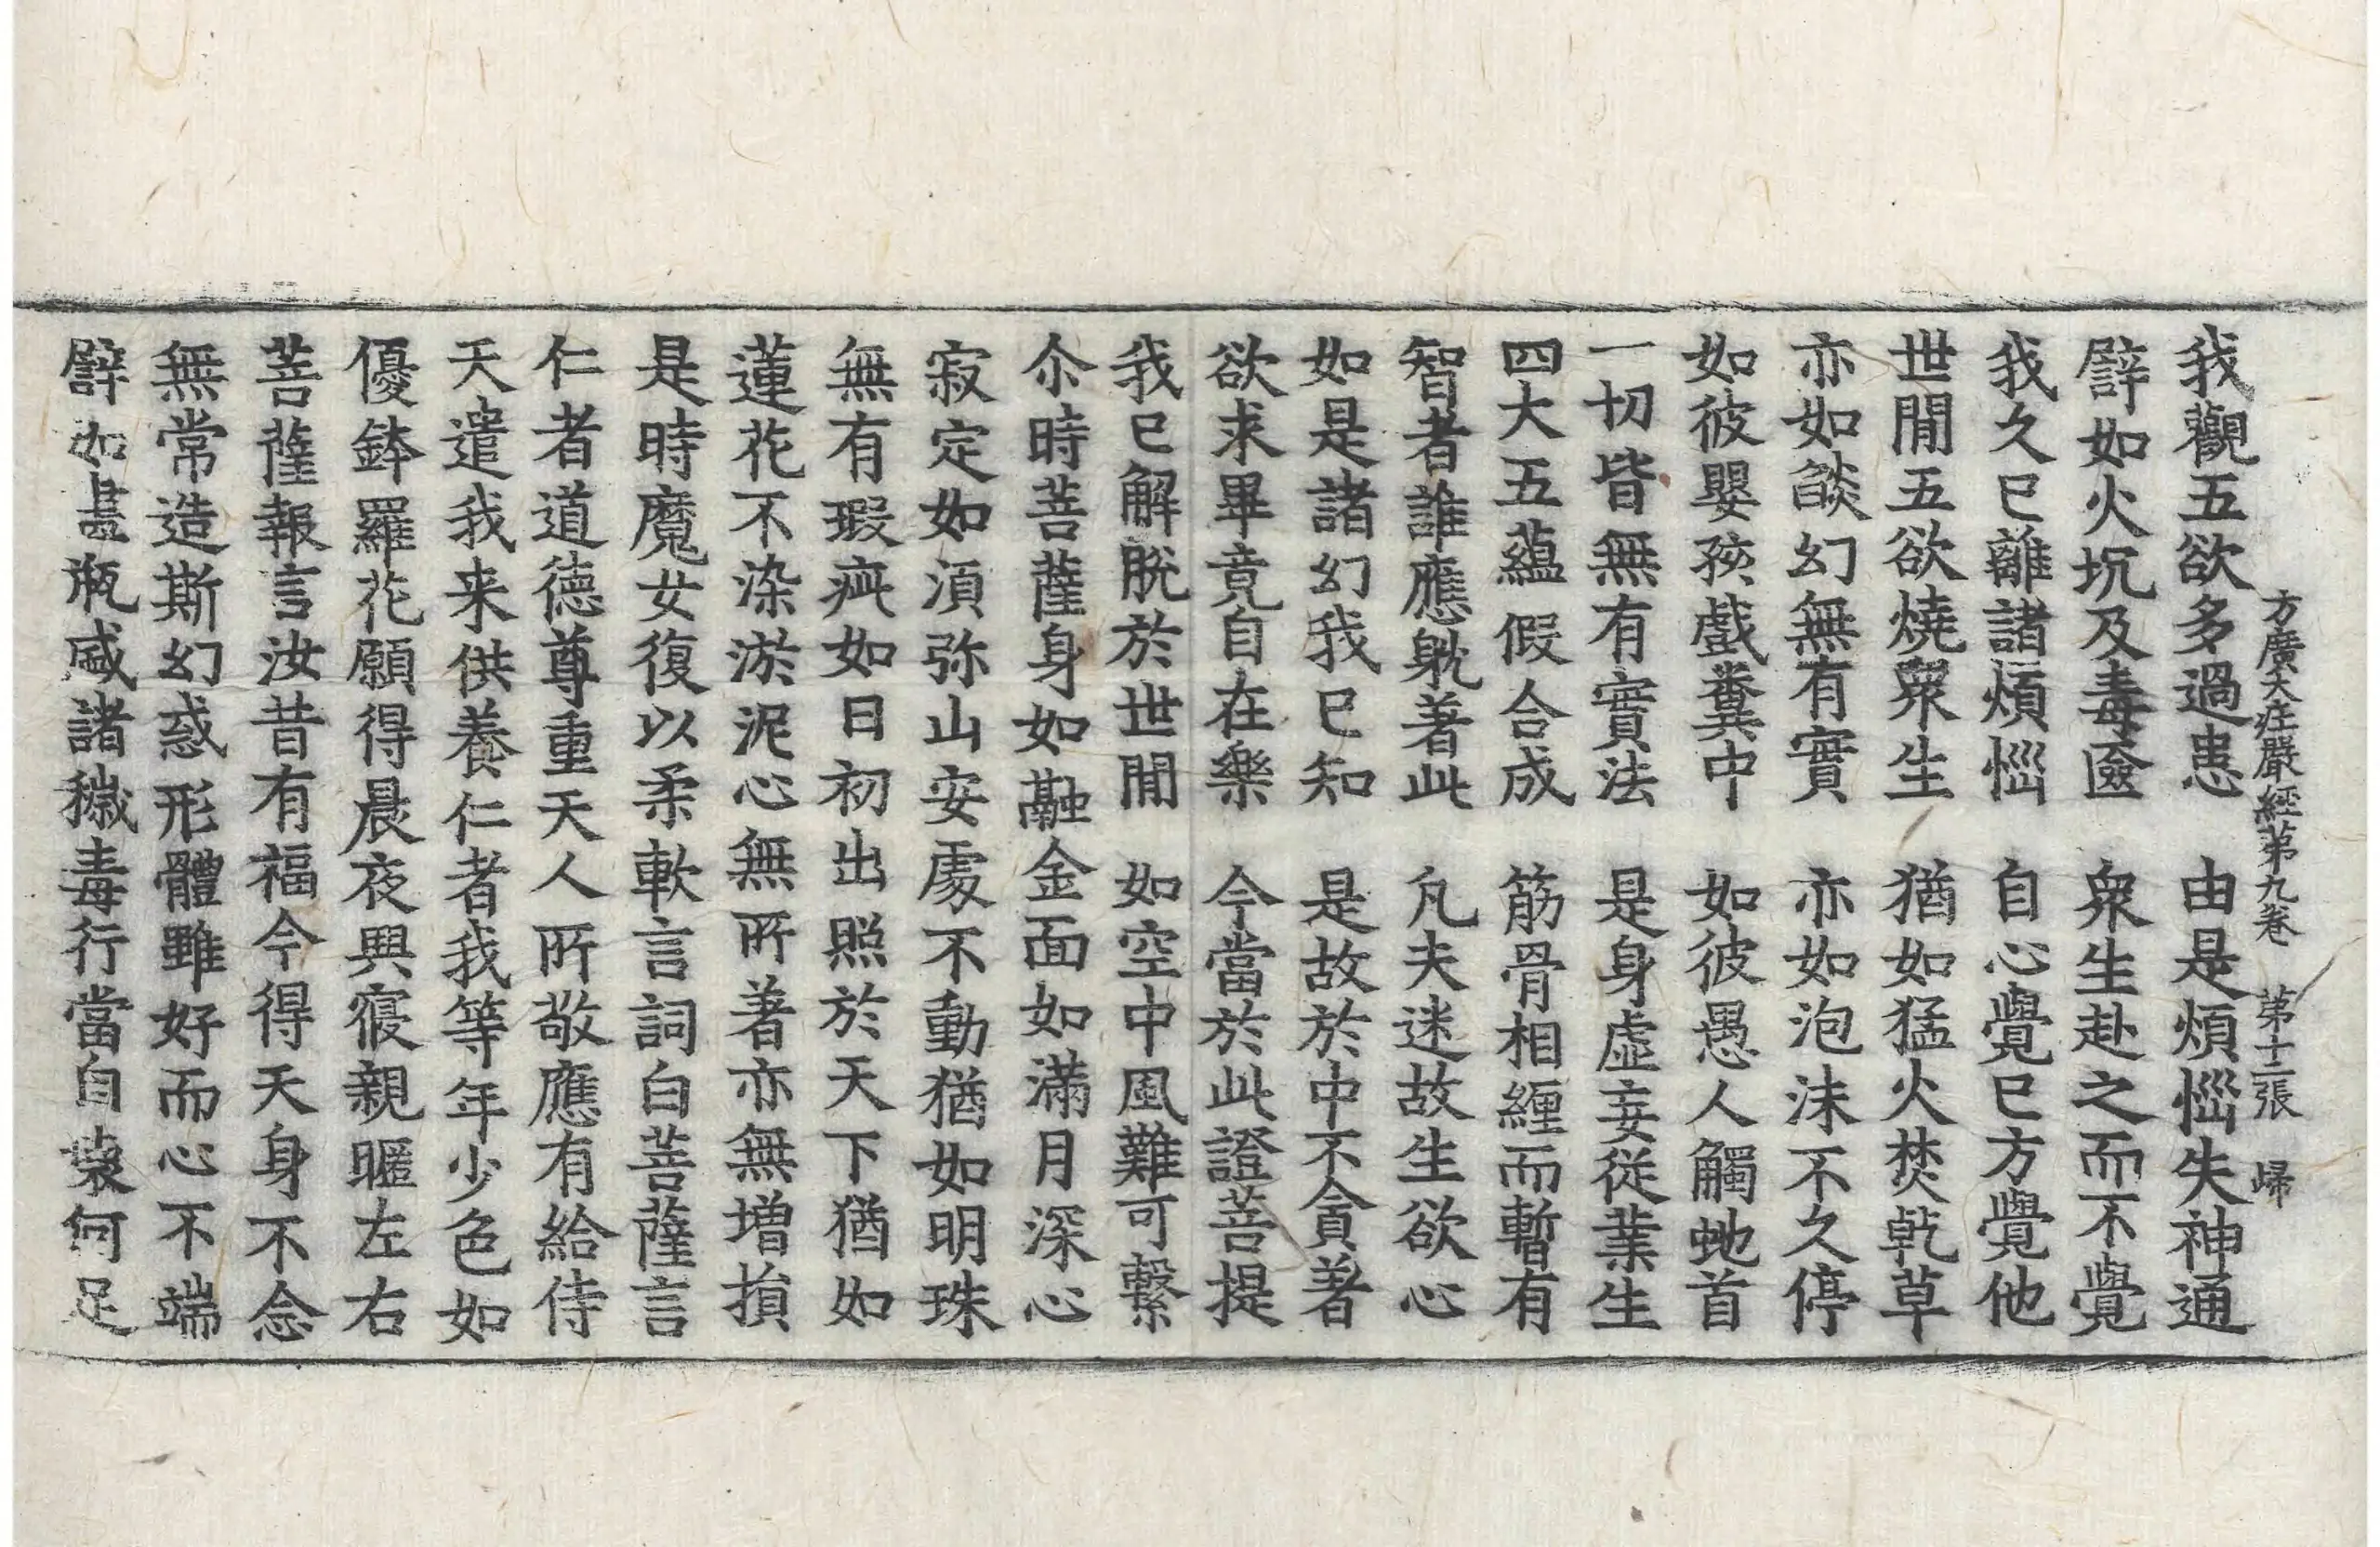 方廣大庄嚴經第九卷 第十二張 歸
我觀五欲多過患 由是煩惱失神通
譬如火坑及毒匳 衆生赴之而不覺
我久已離諸煩惱 自心覺已方覺他
世閒五欲燒衆生 猶如猛火焚乹草
亦如燄幻無有實 亦如泡沫不久停
如彼嬰孩戲糞中 如彼愚人觸虵首
一切皆無有實法 是身虛妄從業生
四大五蘊假合成 筋骨相纏而暫有
智者誰應躭著此 凡夫迷故生欲心
如是諸幻我已知 是故於中不貪著
欲求畢竟自在樂 今當於此證菩提
我已解脫於世閒 如空中風難可繫
尒時菩薩身如融金面如滿月深心
寂定如湏弥山安處不動猶如明珠
無有瑕疵如日初出照於天下猶如
蓮花不染淤泥心無所著亦無增損
是時魔女復以柔軟言詞白菩薩言
仁者道德尊重天人所敬應有給侍
天遣我来供養仁者我等年少色如
優鉢羅花願得晨夜興寢親暱左右
菩薩報言汝昔有福今得天身不念
無常造斯幻惑形體雖好而心不端
譬如畫瓶盛諸穢毒行當自壞何足